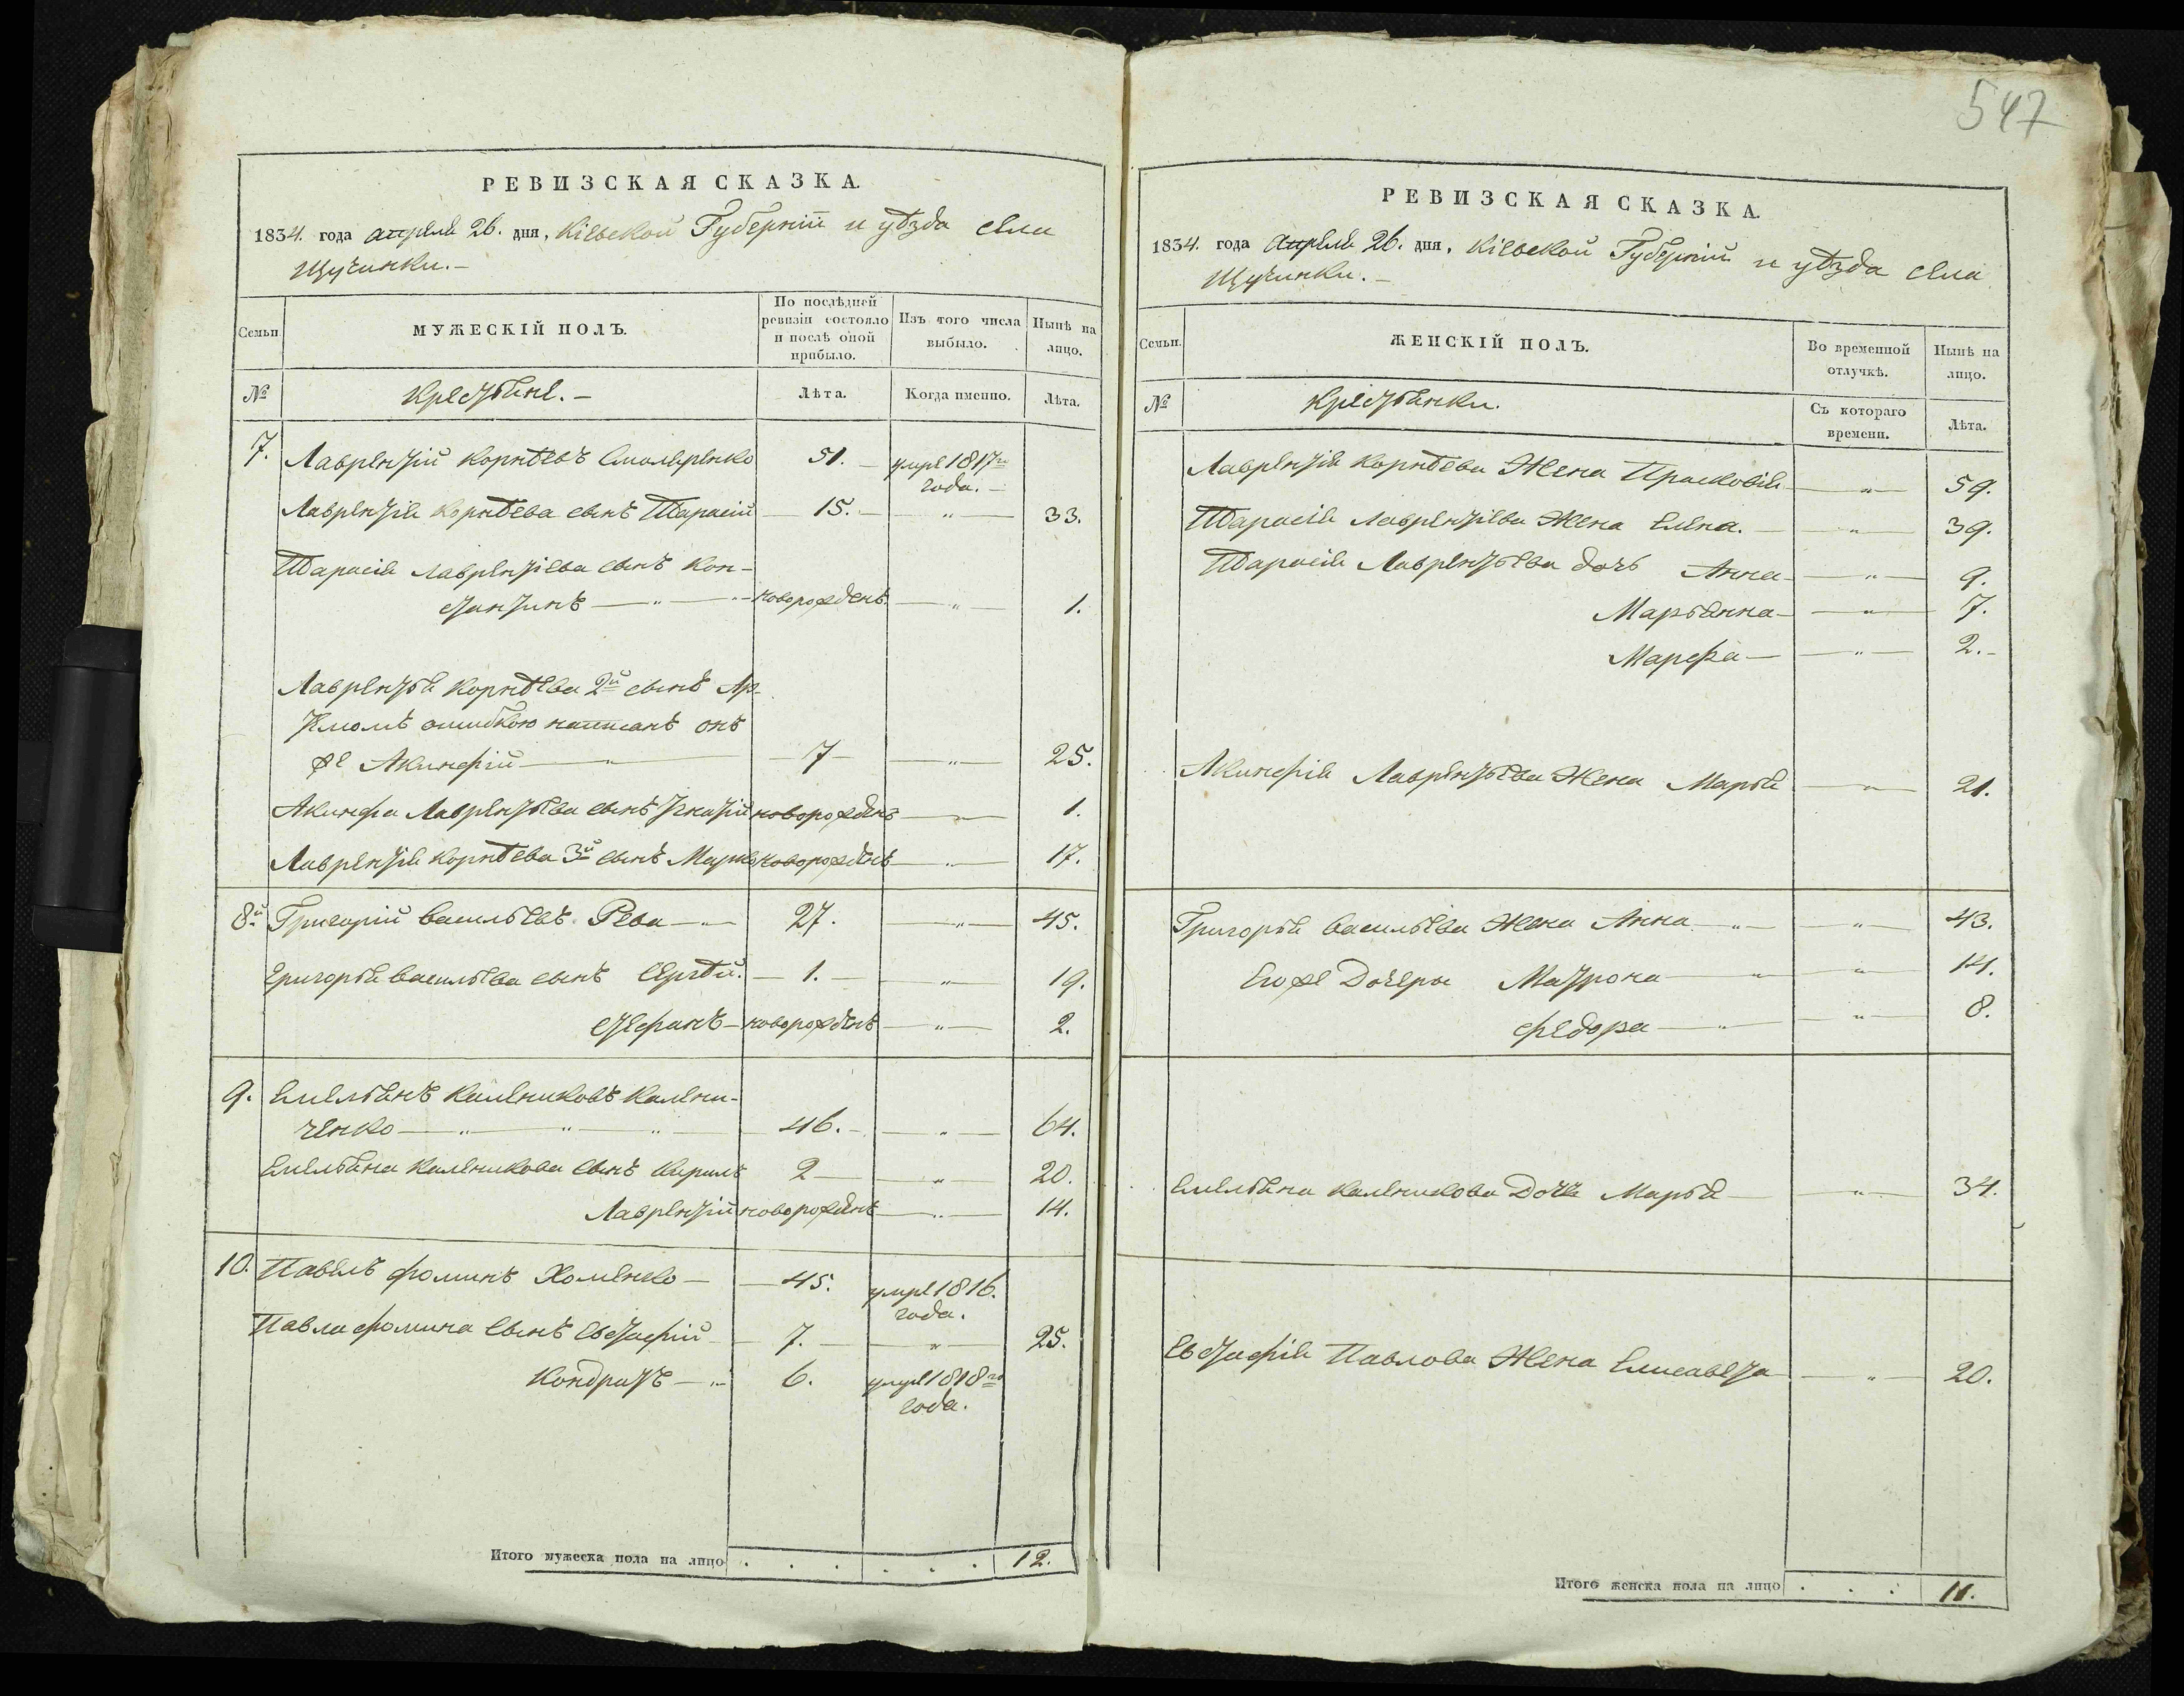 547
РЕВИЗСКАЯ СКАЗКА.
1834. года апреля 26. дня, Кіевской Губерніи и уѣзда села
Щучинки.–
Семьи.
МУЖЕСКІЙ ПОЛЪ.
По послѣдней ревизіи состояло и послѣ оной прибыло.
Изъ того числа выбыло.
Нынѣ на лицо.
№ Крестьяне.– Лѣта. Когда именно. Лѣта.
7. Лаврентій Корнѣевъ 51. – умре 1817го
года. –
Лаврентія Корнѣева сынъ Тарасій – 15. – – „ – 33.
Тарасія Лаврентіева сынъ Кон-
стантинъ – „ – „ – новорожденъ – „ – 1.
Лаврентья Корнѣева 2й сынъ Ар-
темомъ ошибкою написанъ онъ
же Акинфій – „ – 7 – – „ – 25.
Акинфа Лаврентьева сынъ Игнатій новорожденъ – „ – 1.
Лаврентія Корнѣева 3й сынъ Марко новорожденъ – „ – 17.
8й Григорій Васильевъ Рева – „ – 27. – „ – 45.
Григорья Васильева сынъ Сергѣй. – 1. – – „ – 19.
Стефанъ – новорожденъ – „ – 2.
9. Емельянъ Калениковъ Калени-
ченко – „ – „ – „ – 46. – – „ – 64.
Емельяна Каленикова сынъ Кирилъ 2 – – „ – 20.
Лаврентій новорожденъ – „ – 14.
10. Павелъ Фоминъ Хоменко – – 45. умре 1816.
года.
Павла Фомина сынъ Евстафій – 7. – – „ – 25.
Кондратъ – „ – 6. умре 1818го
года.
Итого мужеска пола на лицо . . . . . . 12.
РЕВИЗСКАЯ СКАЗКА.
1834. года апреля 26. дня, Кіевской Губерніи и уѣзда села
Щучинки. –
Семьи.
ЖЕНСКІЙ ПОЛЪ.
Во временной отлучкѣ.
Нынѣ на лицо.
№ Крестьянки. Съ котораго времени. Лѣта.
Лаврентія Корнѣева Жена Прасковія – „ – 59.
Тарасія Лаврентіева Жена Елена. – „ – 39.
Тарасія Лаврентьева дочь Анна – „ – 9.
Марьянна – „ – 7.
Марфа – – „ – 2. –
Акинфія Лаврентьева Жена Марья – „ – 21.
Григорья Васильева Жена Анна – „ – – „ – 43.
Его же Дочеры Матрона – „ – „ – 14.
Федора – „ – – „ – 8.
Емельяна Каленикова Дочь Марья – – „ – 34.
Евстафія Павлова Жена Елисавета – „ – 20.
Итого женска пола на лицо . . . 11.